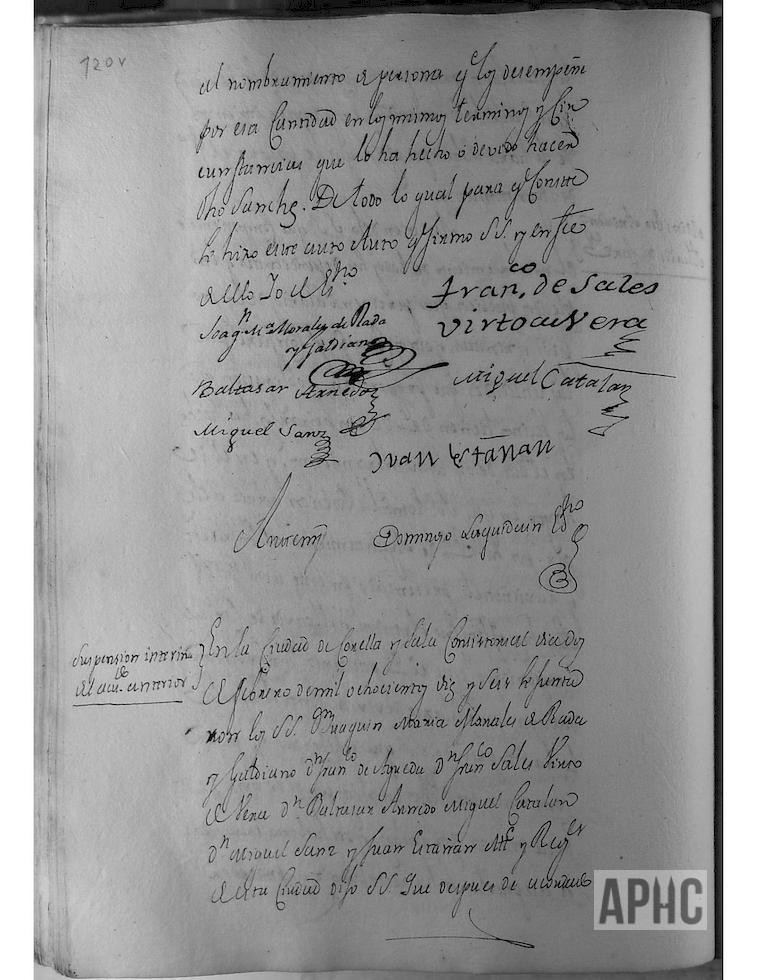 120v
al nombramiento de persona q.e los desempeñe
por esa Cantidad en los mismos terminos y Cir
cunstancias que lo ha hecho o devido hacer
dho Sanchez. De todo lo qual para q.e Conste
se hizo este auto Auto q.e firmo SS. y en fee
de ello Yo el Es.no
Joaq.n M.a Morales de Rada
y Galdiano
Fran.co de Sales
Virto de Vera
Baltasar Arnedo
Miguel Catalan
Miguel Sanz
Juan Estañan
Antemi
Domingo Laquidain Es.no
Suspension interina
del au.to anterior
En la Ciudad de Corella y Sala Consistorial dia dos
de febrero de mil ochocientos diez y seis se junta
ron los SS. D.n Joaquin Maria Morales de Rada
y Galdiano D.n Fran.co de Agreda D.n Fran.co Sales Virto
de Vera D.n Baltasar Arnedo Miguel Catalan
D.n Miguel Sanz y Juan Estañan Al.e y Reg.es
de esta Ciudad dijo SS. Que despues de acordado
APHC